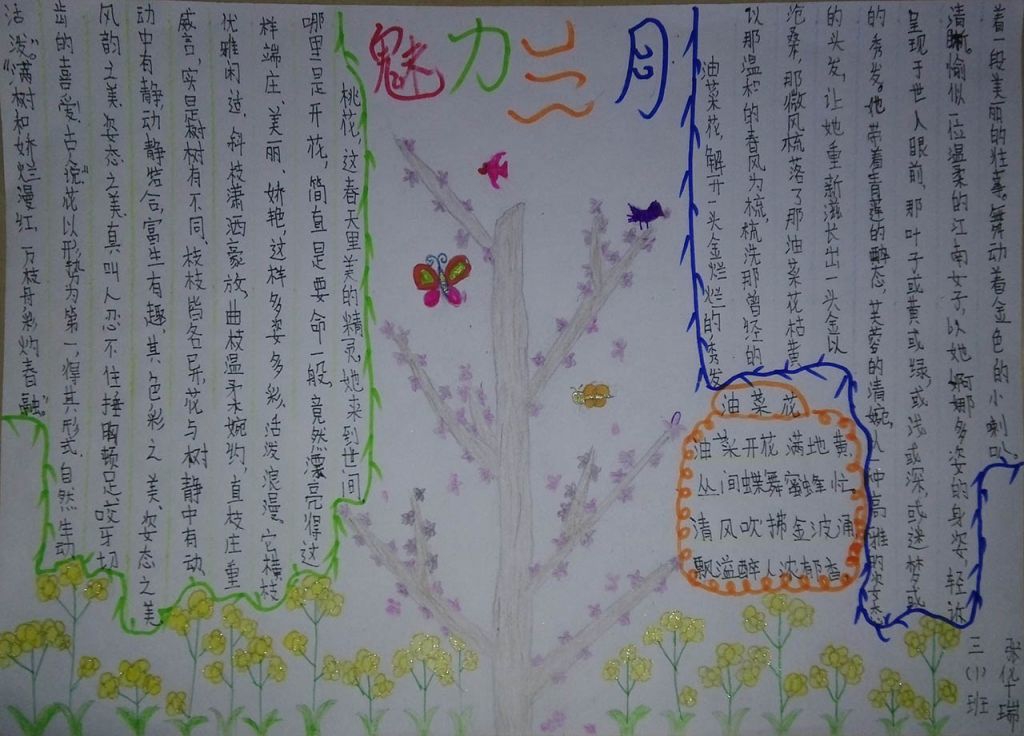 魅力三月
桃花,这春天里美的精灵,她来到世间
哪里是开花,简直是要命一般,竟然漂亮得这
样端庄、美丽、娇艳,这样多姿多彩,活泼浪漫。它横枝
优雅闲适,斜枝潇洒豪放,曲枝温柔婉约,直枝庄重
威言,实是树树有不同,枝枝皆各异,花与树静中有动
动中有静,动静结合,富生有趣,其色彩之美、姿态之美
风韵之美,姿态之美真叫人忍不住捶胸顿足咬牙切
齿的喜爱,古说"花以形势为第一,得其形式,自然生动
活泼。""满树和娇烂漫红,万枝丹彩灼春融"
油菜花,解开一头金烂烂的秀发
似那温和的春风为梳,梳洗那曾经的
沧桑,那微风梳落了那油菜花枯黄
的头发,让她重新滋长出一头金以
的秀发。她带着青莲的醉态,芙蓉的清婉,从一种高雅的姿态
呈现于世人眼前,那叶子或黄或绿,或浅或深,或迷梦或
清晰。愉似一位温柔的江南女子,以她婀娜多姿的身姿,轻诉
着一段美丽的往事。舞动着金色的小喇叭
油菜花
油菜开花满地黄,
丛间蝶舞蜜蜂忙,
清风吹拂金波涌
飘溢醉人浓郁香。
三(1)班